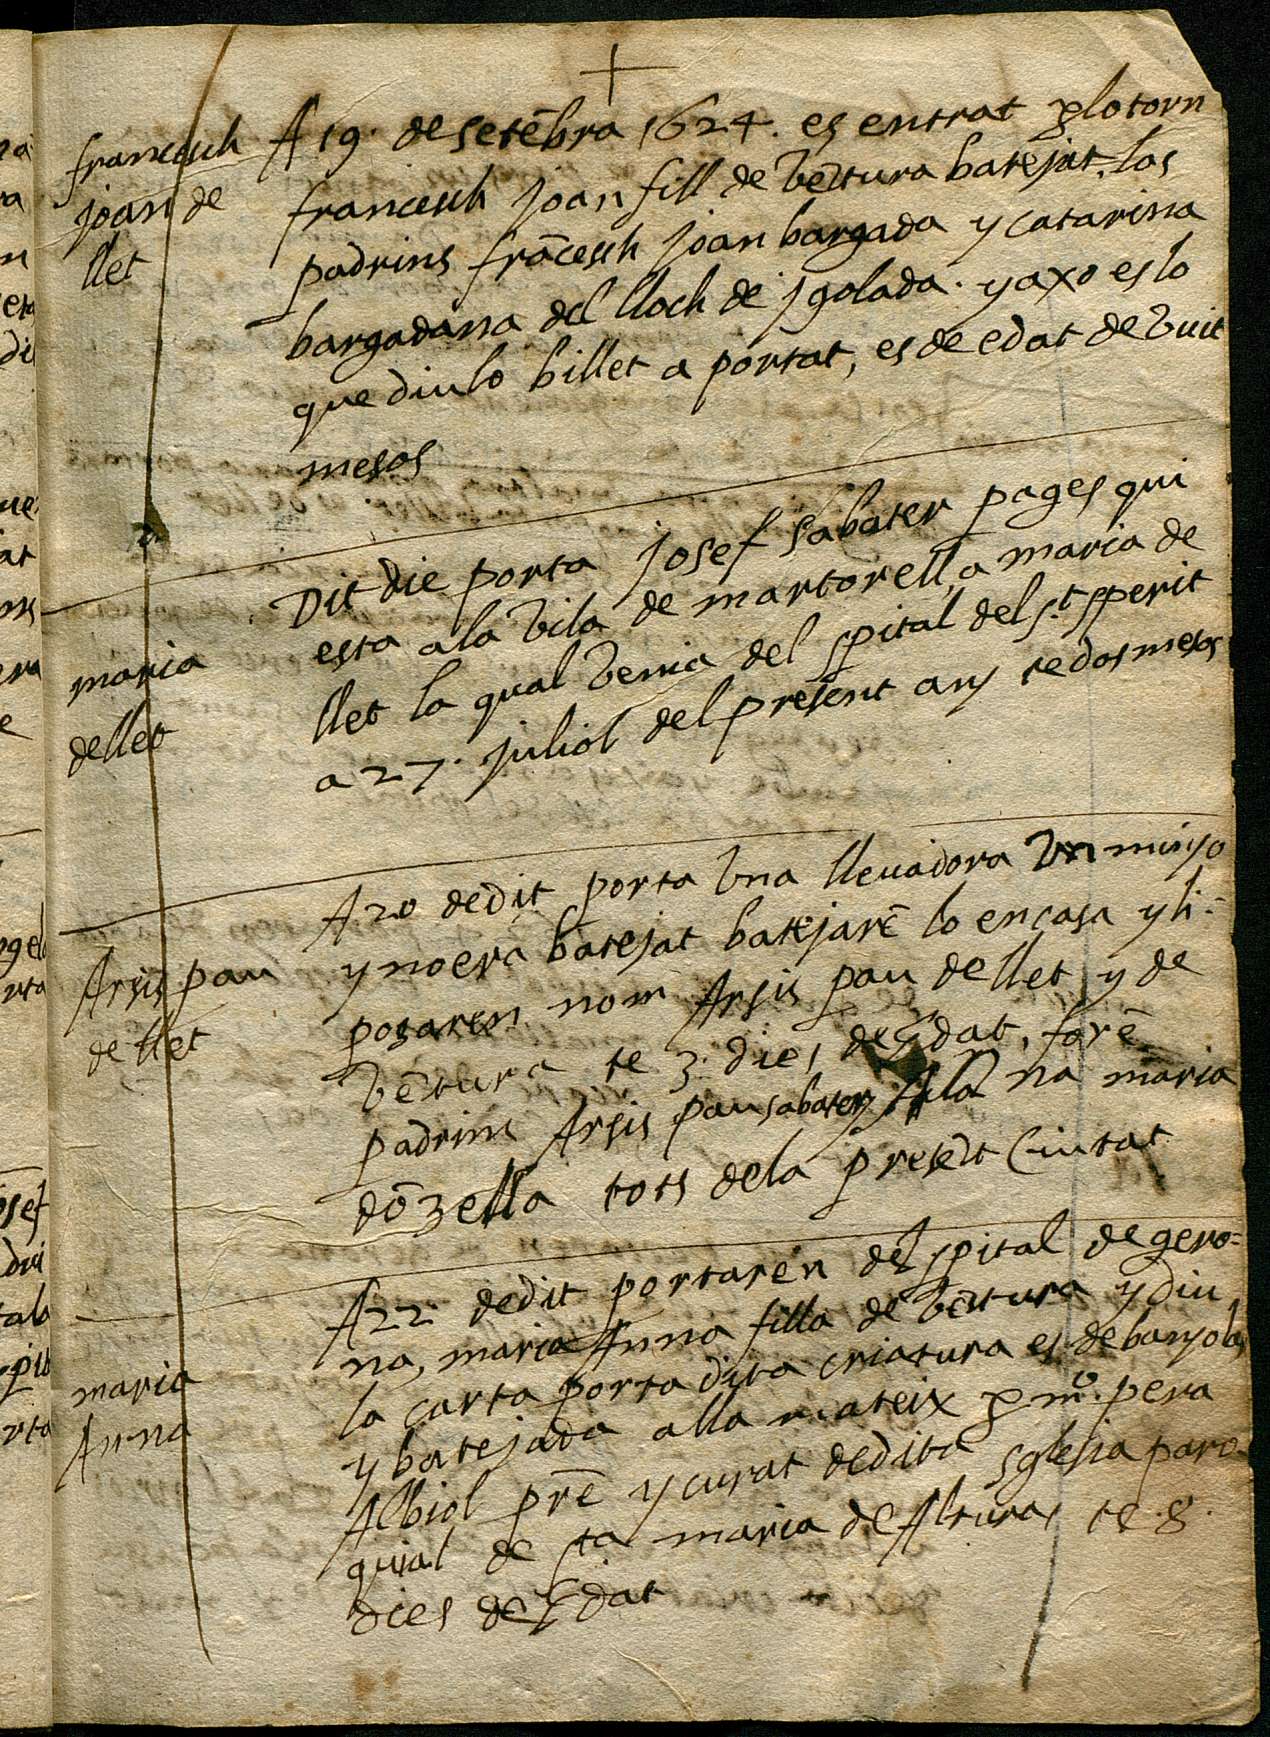 francesch
joan de
llet
A 19. de setēbra 1624. es entrat p lo torn
francesch joan fill de vētura batejat, los
padrins frācesch joan bargada y catarina
bargadana del lloch de jgolada. y axo es lo
que diu lo billet a portat, es de edat de vuit
mesos
maria
de llet
Dit die porta josef sabater pages qui
esta a la vila de martorell, a maria de
llet la qual venia del spital del s.t sperit
a 27. juliol del present any te dos mesos
Arsis pau
de llet
A 20 de dit porta vna lleuadora vn minyo
y no era batejat batejarē lo en casa y li-
posaren nom Arsis pau de llet y de
vētura te 3. dies de Edat, forē
padrins Arsis pau sabater y na maria
dōzella tots de la presēt Ciutat
maria
Anna
A 22 de dit portaren del spital de gero=
na, maria Anna filla de vētura y diu
la carta porta dita criatura es de banyolas
y batejada alla mateix p m.o pera
Albiol prē y curat de dita sglesia paro
quial de sta maria de Alturas te. 8.
dies de Edat